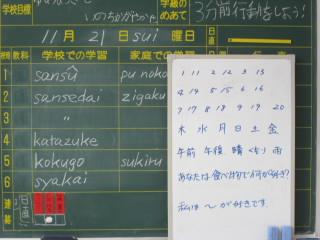 学校目標
いのちかがやく
学級の
めあて
3分前行動をしよう!
11月21日sui曜日
日直
時間 教科 学校での学習 家庭での学習
1 sansu pu noko
2 sansedai zigaku
3 〃
4 katazuke
5 kokugo sukiru
6 syakai
連絡
1 11 2 12 3 13
4 14 5 15 6 16
7 17 8 18 9 19 20
木 水 月 日 土 金
午前 午後 晴 くもり 雨
あなたは食べ物で何が好き?
私は 〜が好きです。